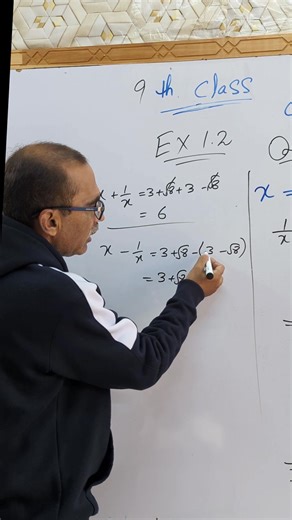 9 th class
EX 1.2
x + 1/x = 3 + √8 + 3 - √8
= 6
x - 1/x = 3 + √8 - (3 - √8)
= 3 + √8
x =
1/x
=
=